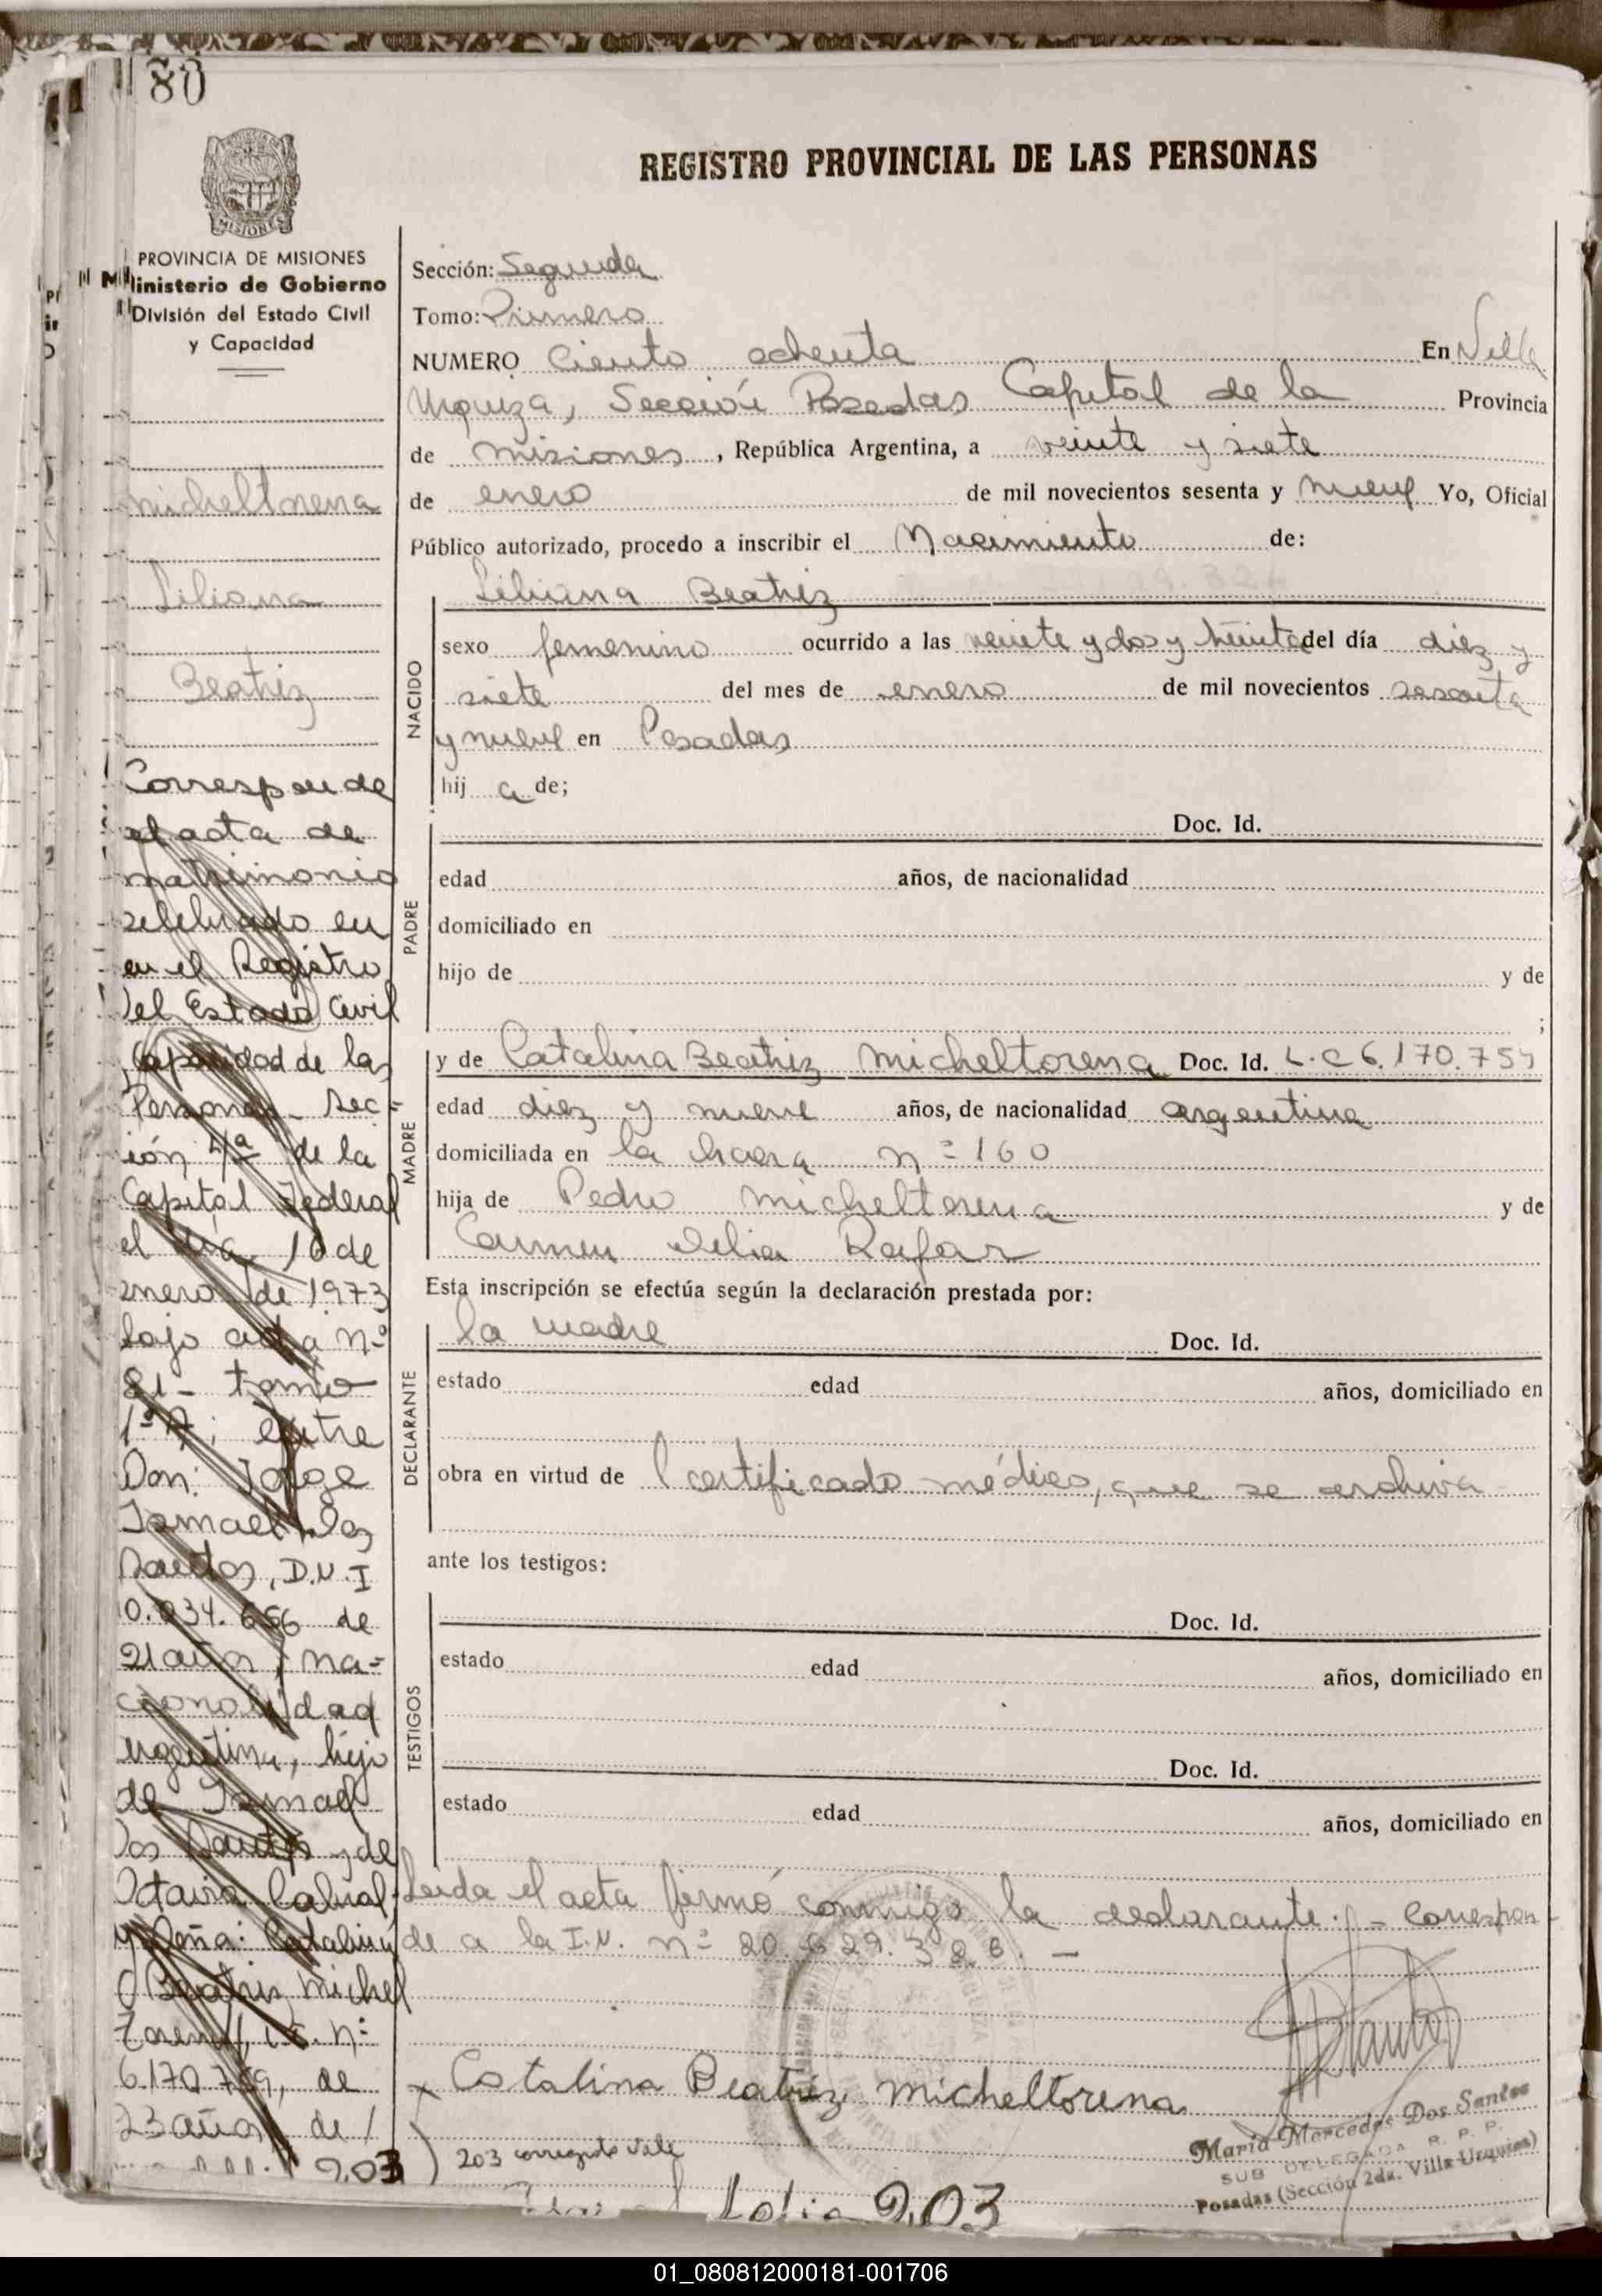 80
REGISTRO PROVINCIAL DE LAS PERSONAS
MISIONES
PROVINCIA DE MISIONES
Ministerio de Gobierno
División del Estado Civil
y Capacidad
Micheltorena
Liliana
Beatriz
Corresponde
el acta de
matrimonio
celebrado en
en el Registro
del Estado Civil
Capacidad de las
Personas - Sec-
ión 4ª de la
Capital Federal
el día 10 de
enero de 1973
bajo acta nº
81 - tomo
1º A; entre
Don: Jorge
Ismael Dos
Santos, D.N.I
10.034.656 de
21 años, na=
cionalidad
argentina, hijo
de Ismael
Dos Santos y de
Octavia Cabral
y Doña: Catalina
Beatriz Michel
torena, L.C. nº
6.170.759, de
23 años, de
203
Sección: Segunda
Tomo: Primero
NUMERO Ciento ochenta En Villa
Urquiza, Sección Posadas Capital de la Provincia
de misiones, República Argentina, a veinte y siete
de enero de mil novecientos sesenta y nueve Yo, Oficial
Público autorizado, procedo a inscribir el Nacimiento de:
Liliana Beatriz
NACIDO
sexo femenino ocurrido a las veinte y dos y treinta del día diez y
siete del mes de enero de mil novecientos sesenta
y nueve en Posadas
hij a de;
PADRE
Doc. Id.
edad años, de nacionalidad
domiciliado en
hijo de y de
;
MADRE
y de Catalina Beatriz Micheltorena Doc. Id. L.C 6.170.759
edad diez y nueve años, de nacionalidad argentina
domiciliada en la chacra nº 160
hija de Pedro Micheltorena y de
Carmen Delia
Esta inscripción se efectúa según la declaración prestada por:
DECLARANTE
la madre Doc. Id.
estado edad años, domiciliado en
obra en virtud de certificado médico, que se archiva
ante los testigos:
TESTIGOS
Doc. Id.
estado edad años, domiciliado en
Doc. Id.
estado edad años, domiciliado en
Leida el acta firmó conmigo la declarante. - Correspon-
de a la I.N. nº 20.629.328. -
Catalina Beatriz Micheltorena
María Mercedes Dos Santos
SUB DELEGADA R. P. P.
Posadas (Sección 2da. Villa Urquiza)
203 corregido vale
folio 203
01_080812000181-001706